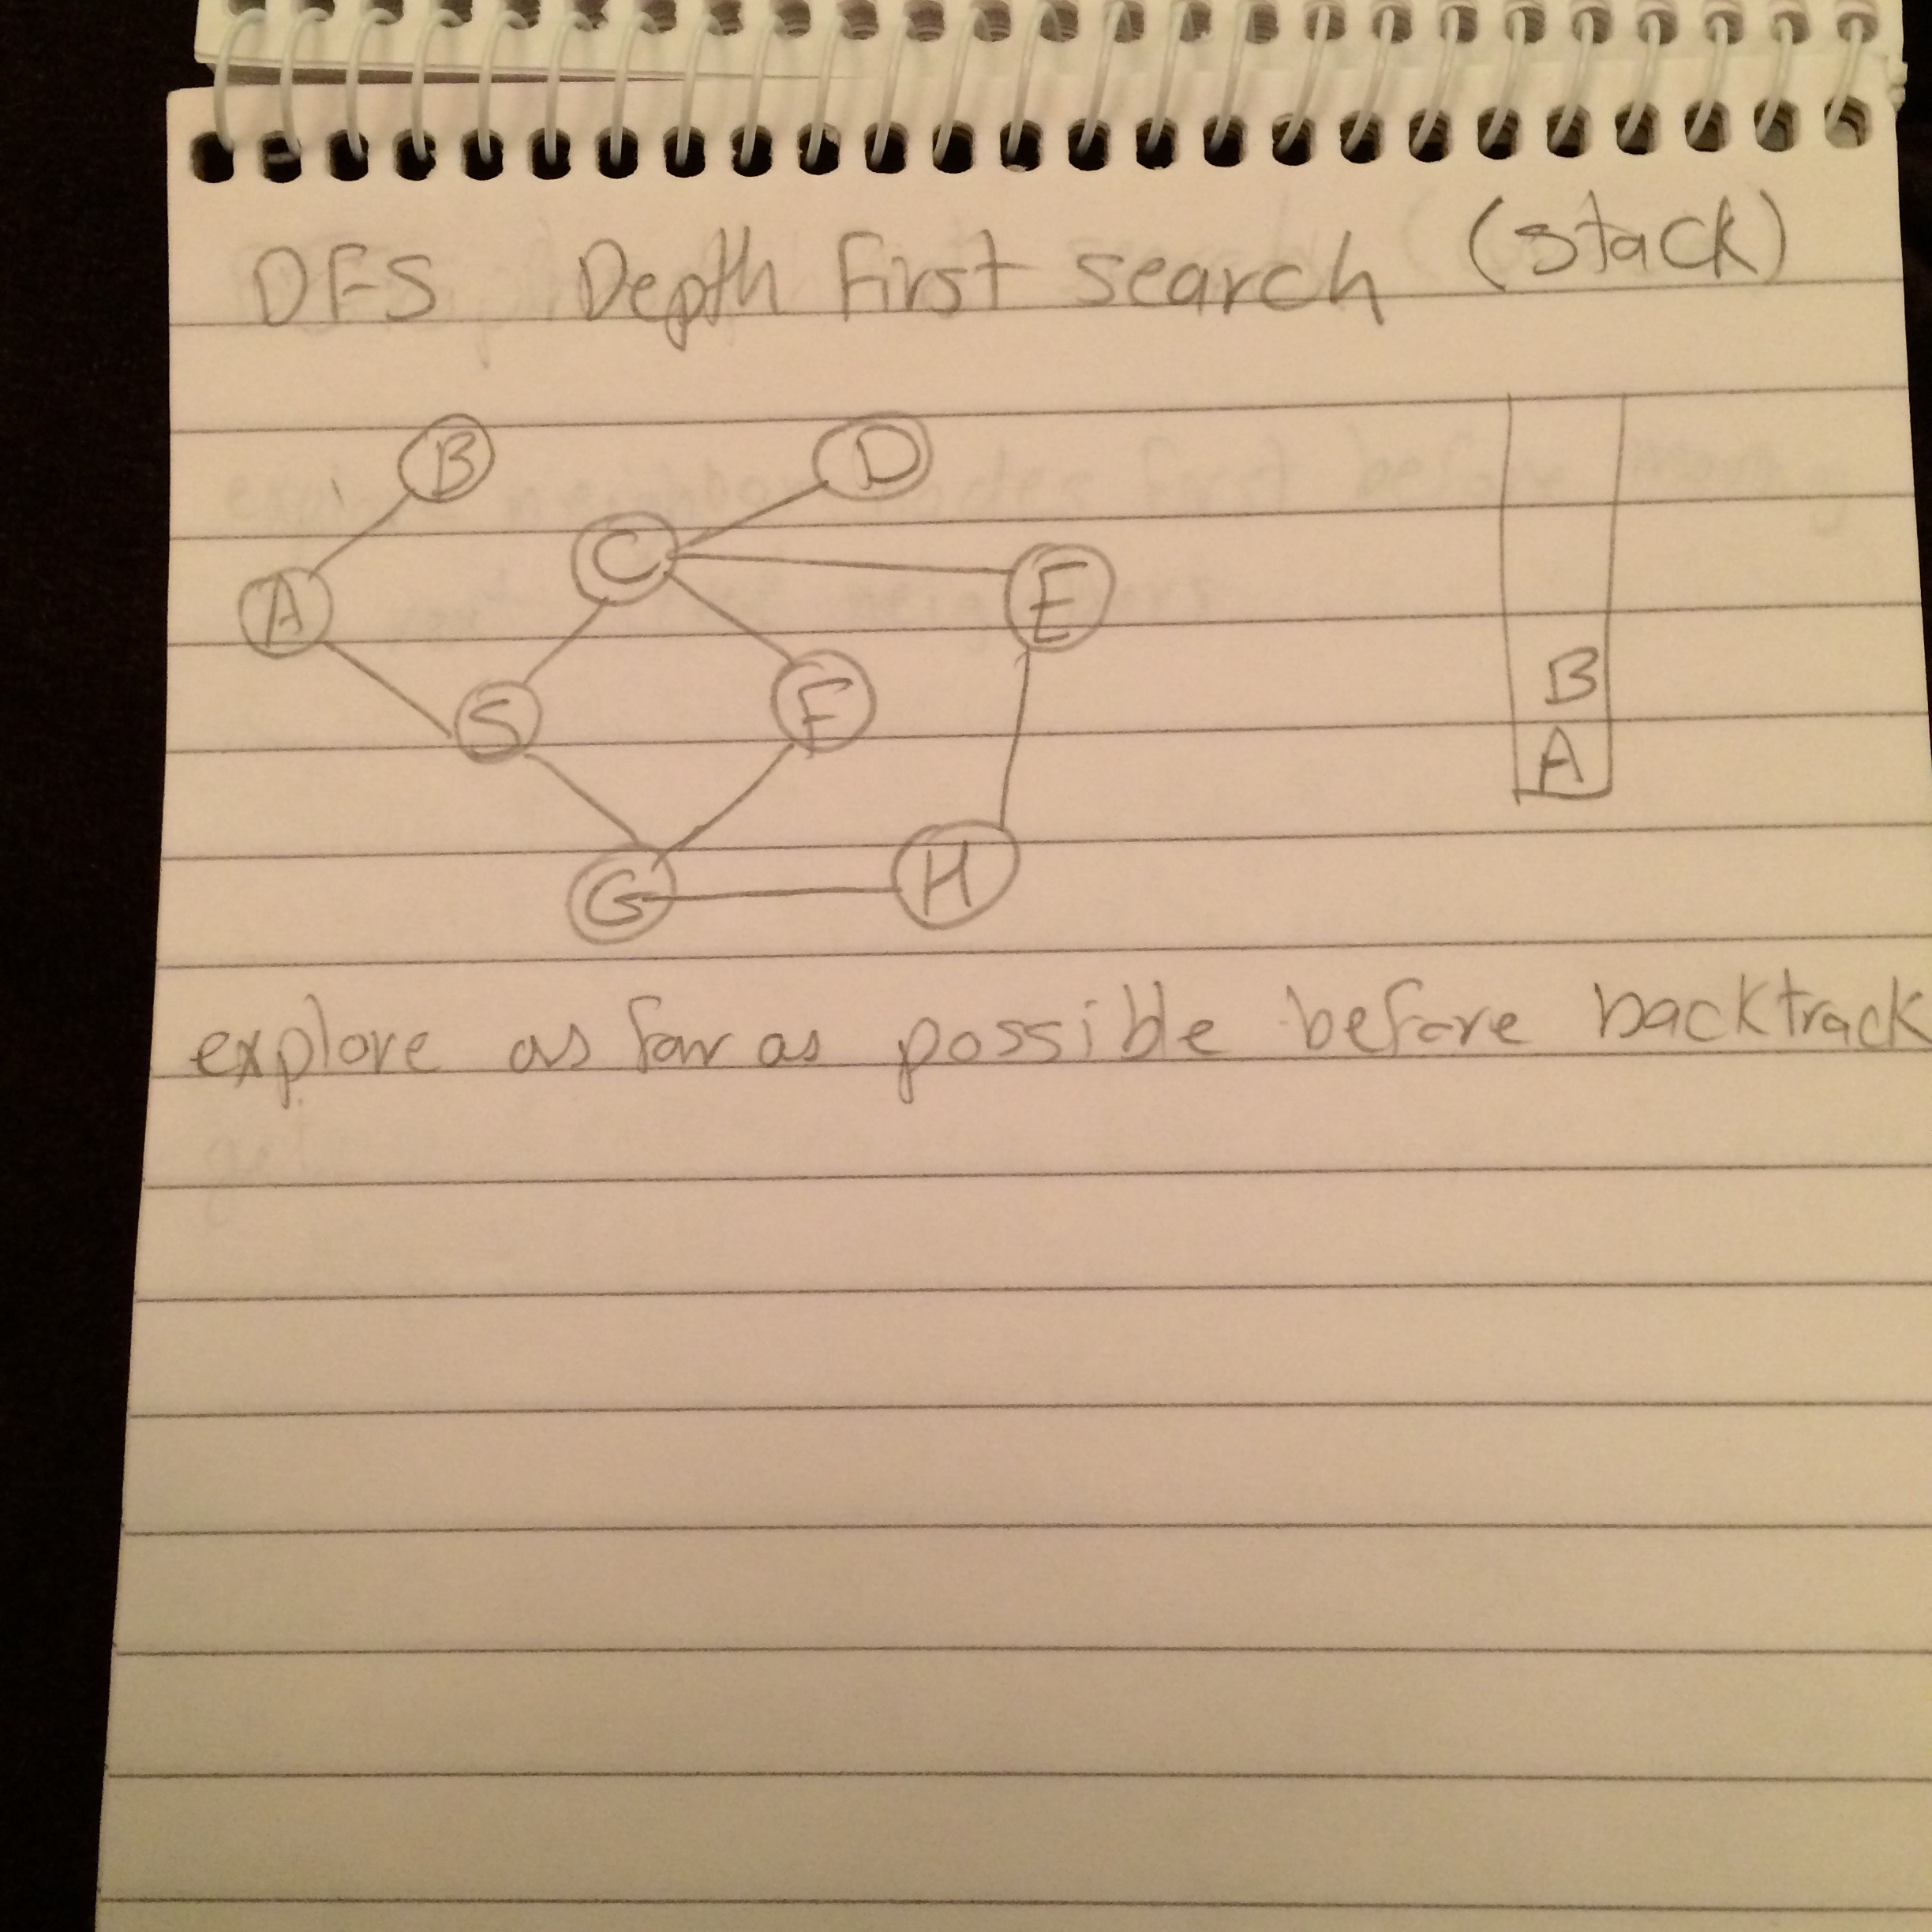 DFS Depth First search (stack)
B
D
C
A
E
B
S
F
A
G
H
explore as far as possible before backtrack